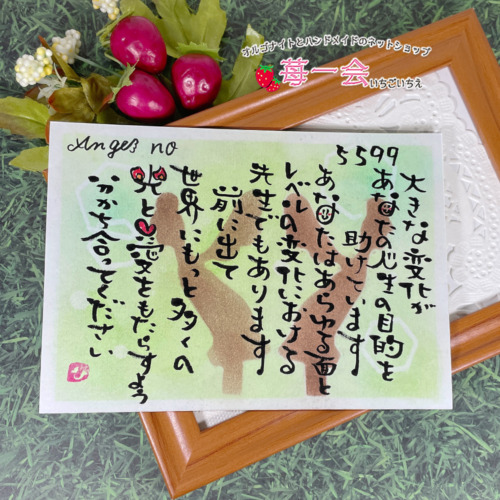 オルゴナイトとハンドメイドのネットショップ
苺一会
いちごいちえ
Angel no
5599
大きな変化が
あなたの人生の目的を
助けています
あなたはあらゆる面と
レベルの変化における
先生でもあります
前に出て
世界にもっと多くの
光と愛をもたらすよう
わかち合ってください